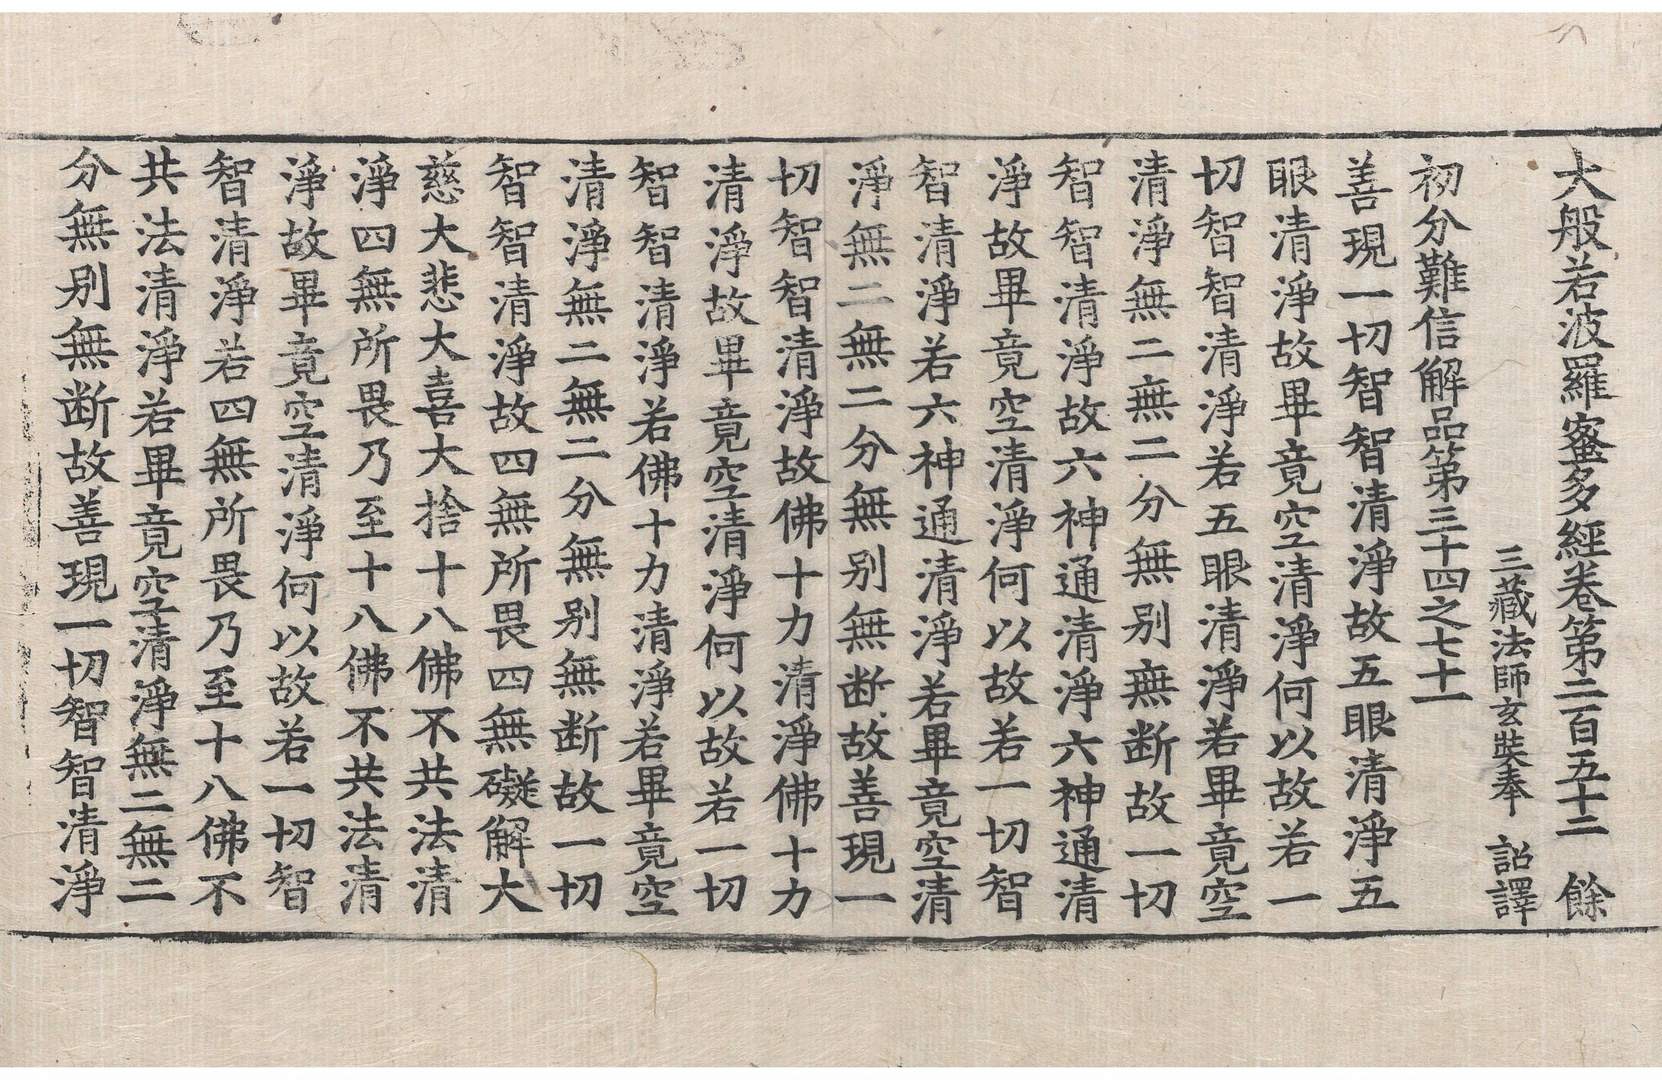 大般若波羅蜜多經卷第二百五十二　餘
三藏法師玄奘奉　詔譯
初分難信解品第三十四之七十一
善現一切智智清淨故五眼清淨五
眼清淨故畢竟空清淨何以故若一
切智智清淨若五眼清淨若畢竟空
清淨無二無二分無別無断故一切
智智清淨故六神通清淨六神通清
淨故畢竟空清淨何以故若一切智
智清淨若六神通清淨若畢竟空清
淨無二無二分無別無断故善現一
切智智清淨故佛十力清淨佛十力
清淨故畢竟空清淨何以故若一切
智智清淨若佛十力清淨若畢竟空
清淨無二無二分無別無断故一切
智智清淨故四無所畏四無礙解大
慈大悲大喜大捨十八佛不共法清
淨四無所畏乃至十八佛不共法清
淨故畢竟空清淨何以故若一切智
智清淨若四無所畏乃至十八佛不
共法清淨若畢竟空清淨無二無二
分無別無断故善現一切智智清淨